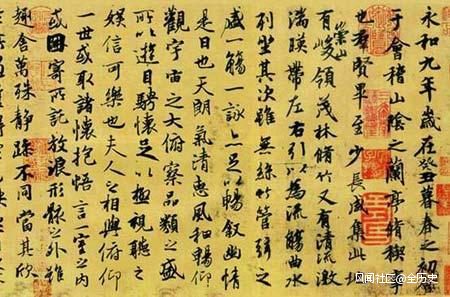 永和九年歲在癸丑暮春之初會
于會稽山陰之蘭亭脩稧事
也群賢畢至少長咸集此地
有崇山峻領茂林脩竹又有清流激
湍暎帶左右引以為流觴曲水
列坐其次雖無絲竹管弦之
盛一觴一詠亦足以暢叙幽情
是日也天朗氣清惠風和暢仰
觀宇宙之大俯察品類之盛
所以遊目騁懷足以極視聽之
娛信可樂也夫人之相與俯仰
一世或取諸懷抱悟言一室之內
或因寄所託放浪形骸之外雖
趣舍萬殊靜躁不同當其欣
风闻社区@全历史